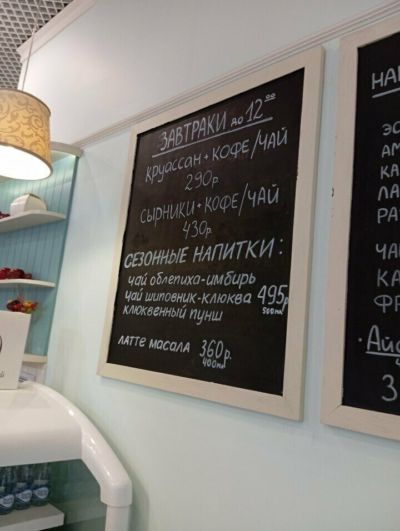 ЗАВТРАКИ до 12⁰⁰
КРУАССАН + КОФЕ/ЧАЙ
290р
СЫРНИКИ + КОФЕ/ЧАЙ
430р.
СЕЗОННЫЕ НАПИТКИ:
чай облепиха-имбирь
чай шиповник-клюква 495р
500мл
клюквенный пунш
латте масала 360р.
400мл
НА
ЭС
АМ
КА
ЛА
ЧА
КА
ФР
3